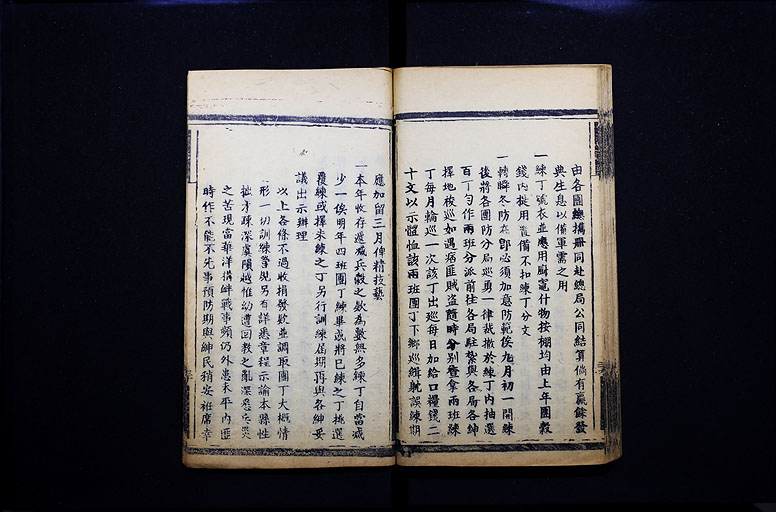 由各團總攜冊同赴總局公同結算倘有贏餘發
典生息以備軍需之用
一練丁號衣並應用廚竈什物按棚均由上年團穀
錢內提用置備不扣練丁分文
一轉瞬冬防在卽必須加意防範俟九月初一開練
後將各團防分局巡勇一律裁撤於練丁內抽選
百丁勻作兩班分派前往各局駐紮與各局各紳
擇地梭巡如遇痞匪賊盜隨時分別斃拿兩班練
丁每月輪巡一次該丁出巡每日加給口糧錢二
十文以示體恤該兩班團丁下鄉巡緝躭誤練期
應加留三月俾精技藝
一本年收存遞減兵穀之欵為數無多練丁自當減
少一俟明年四班團丁練畢或將已練之丁挑選
覆練或擇未練之丁另行訓練屆期再與各紳妥
議出示辦理
以上各條不過收捐發欵並調取團丁大概情
形一切訓練營規另有詳悉章程示諭本縣性
拙才疎深虞隕越惟幼遭回教之亂深悉兵災
之苦現富華洋搆衅戰事頻仍外患未平內匪
時作不能不先事預防期與紳民稍安袵席幸